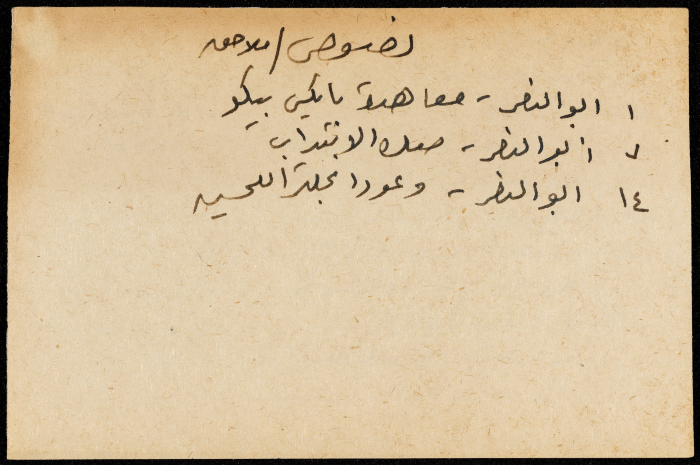 نصوص / ملاحق
١ ابو النصر - معاهدة سايكس بيكو
٧ ابو النصر - صك الانتداب
١٤ ابو النصر - وعود انجلترا للحسين